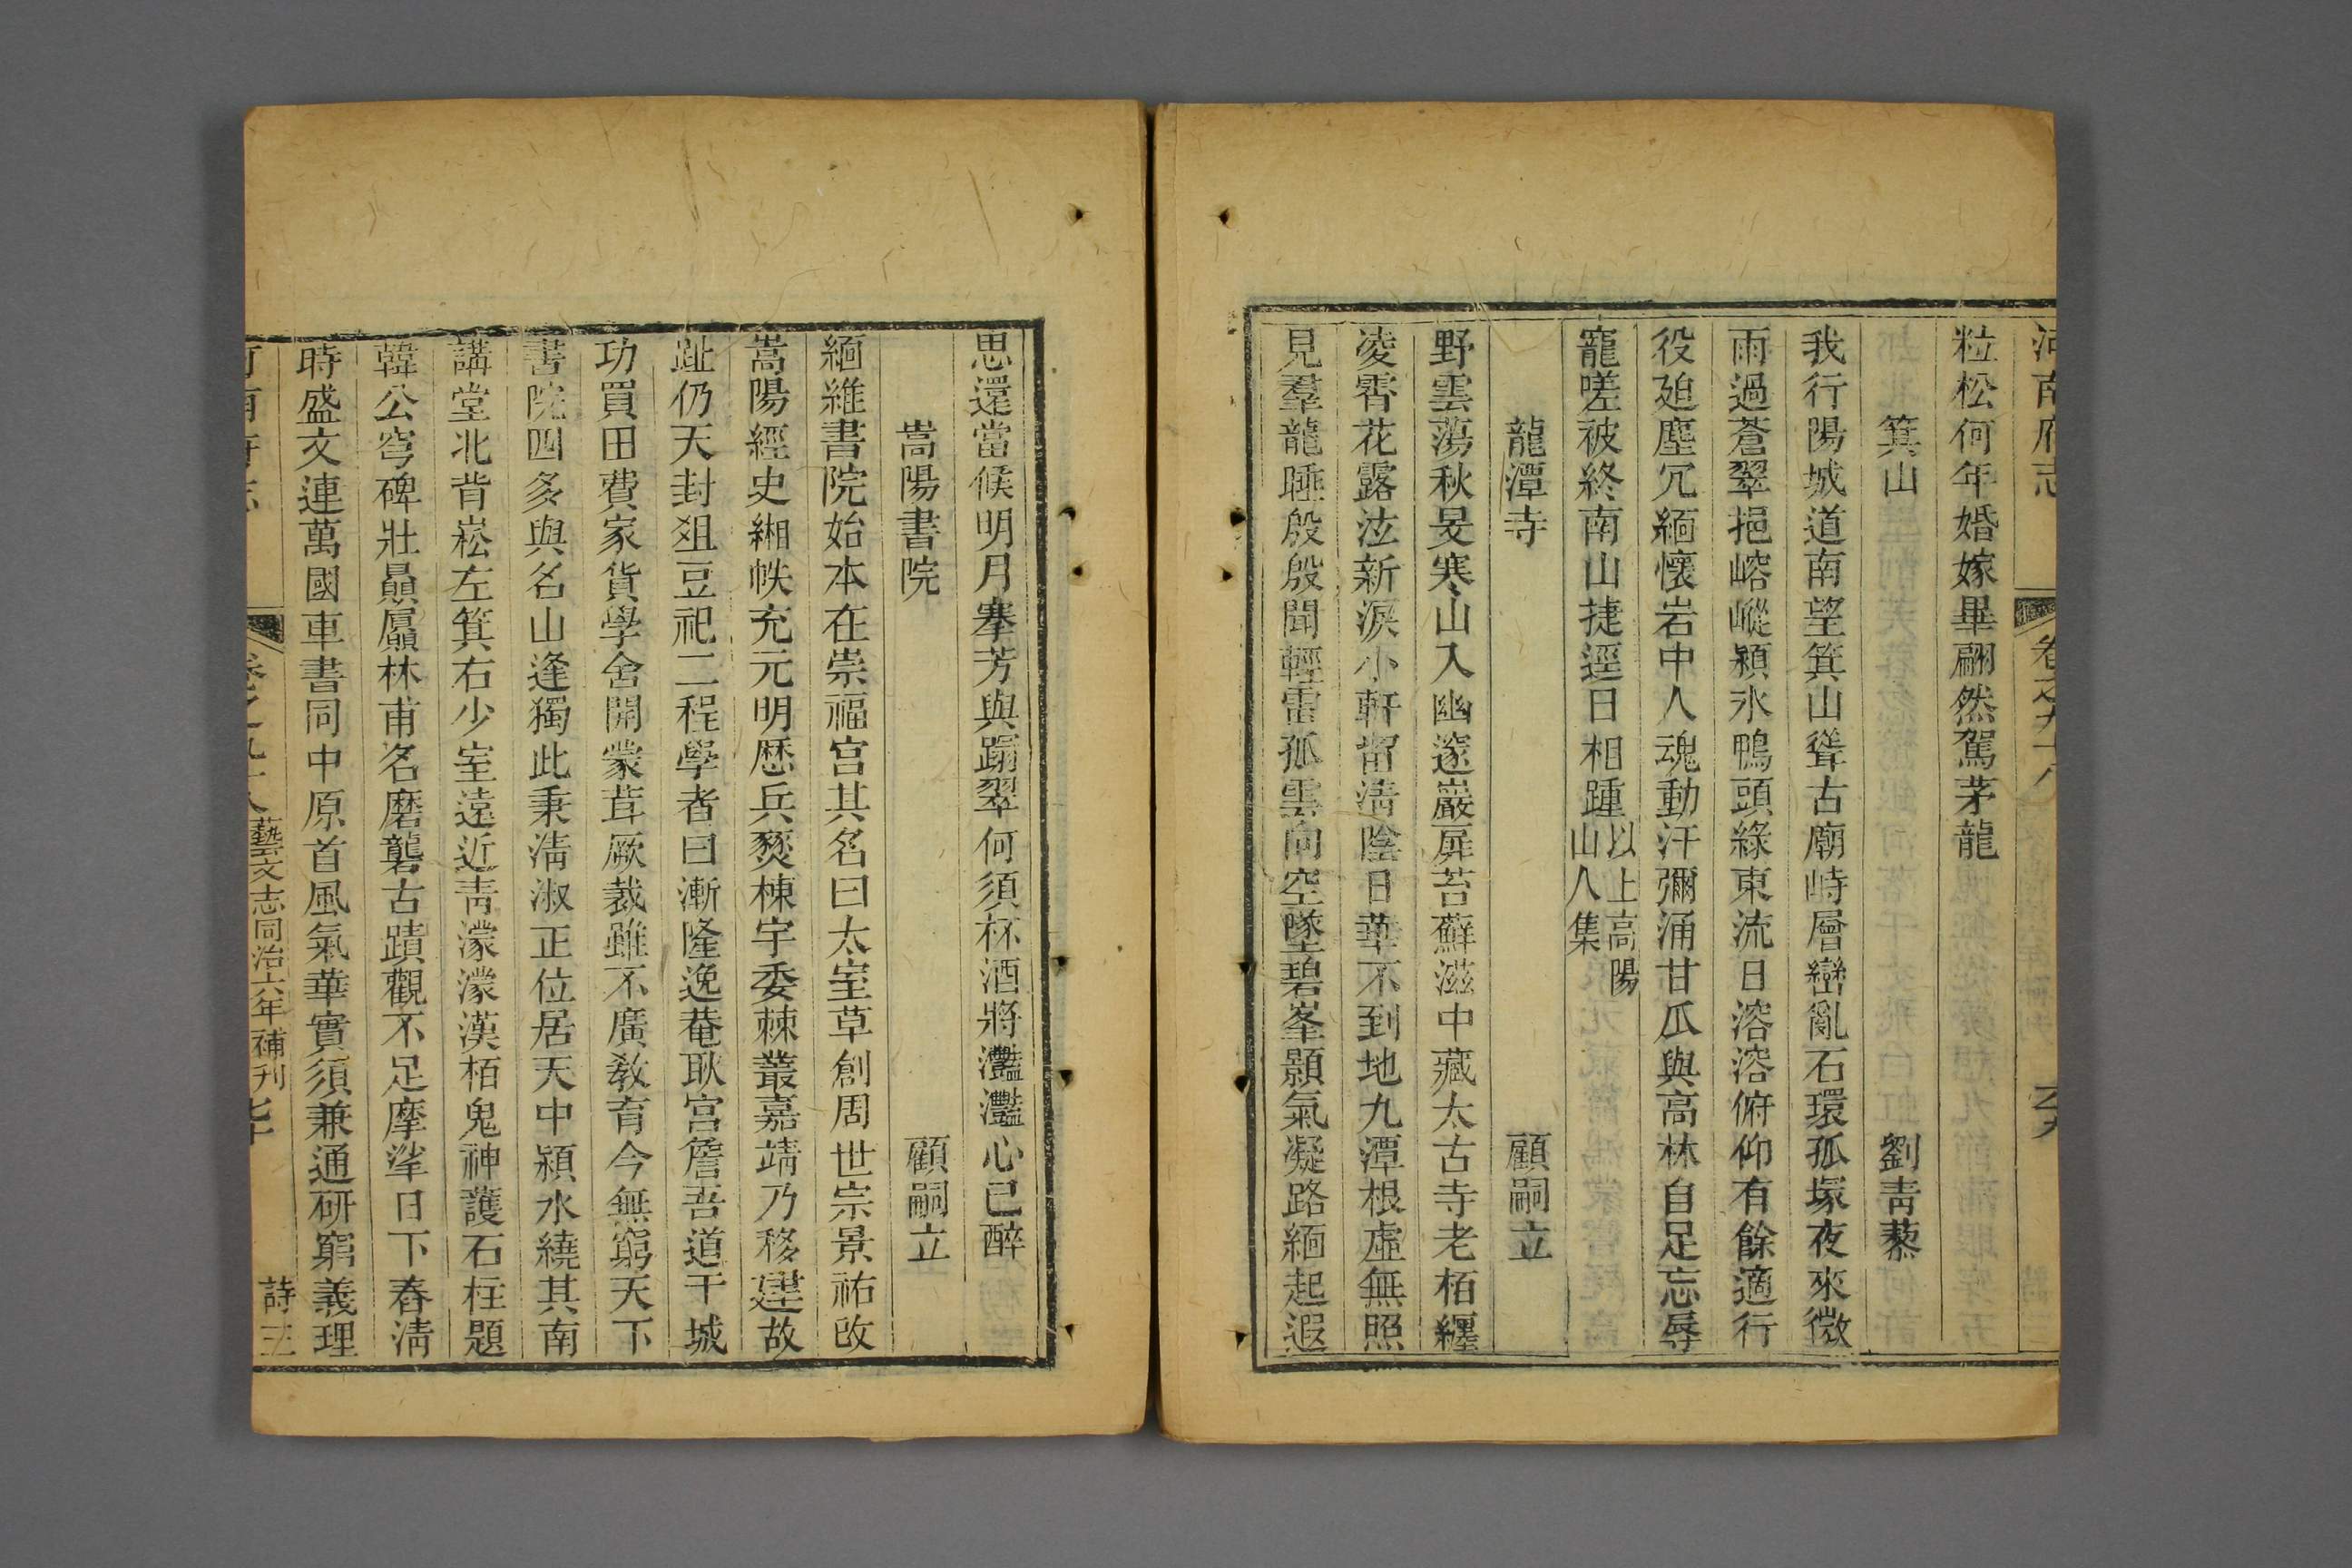 河南府志 卷之九十八 六九
粒松何年婚嫁畢翩然駕茅龍
箕山 劉青藜
我行陽城道南望箕山聳古廟峙層巒亂石環孤塚夜來微
雨過蒼翠挹嵱嵷潁水鴨頭綠東流日溶溶俯仰有餘適行
役廹塵冗緬懷岩中人魂動汗彌涌甘瓜與高林自足忘辱
寵嗟被終南山捷逕日相踵以上高陽山人集
龍潭寺 顧嗣立
野雲蕩秋旻寒山入幽邃巖扉苔蘚滋中藏太古寺老栢纒
凌霄花露泫新淚小軒留淸陰日華不到地九潭根虛無照
見羣龍睡殷殷聞輕雷孤雲向空墜碧峯顥氣凝路緬起遐
思還當候明月搴芳與蹋翠何須杯酒將灩灩心已醉
嵩陽書院 顧嗣立
緬維書院始本在崇福宮其名曰太室草創周世宗景祐改
嵩陽經史緗帙充元明歷兵燹棟宇委棘叢嘉靖乃移建故
趾仍天封俎豆祀二程學者曰漸隆逸菴耿宮詹吾道干城
功買田費家貨學舍開蒙茸厥裁雖不廣敎育今無窮天下
書院四多與名山逢獨此秉淸淑正位居天中潁水繞其南
講堂北背崧左箕右少室遠近靑濛濛漢栢鬼神護石柱題
韓公穹碑壯贔屭林甫名磨礱古蹟觀不足摩挲日下舂淸
時盛文連萬國車書同中原首風氣華實須兼通硏窮義理
河南府志 卷之九十八 藝文志同治六年補刋 七十 詩三